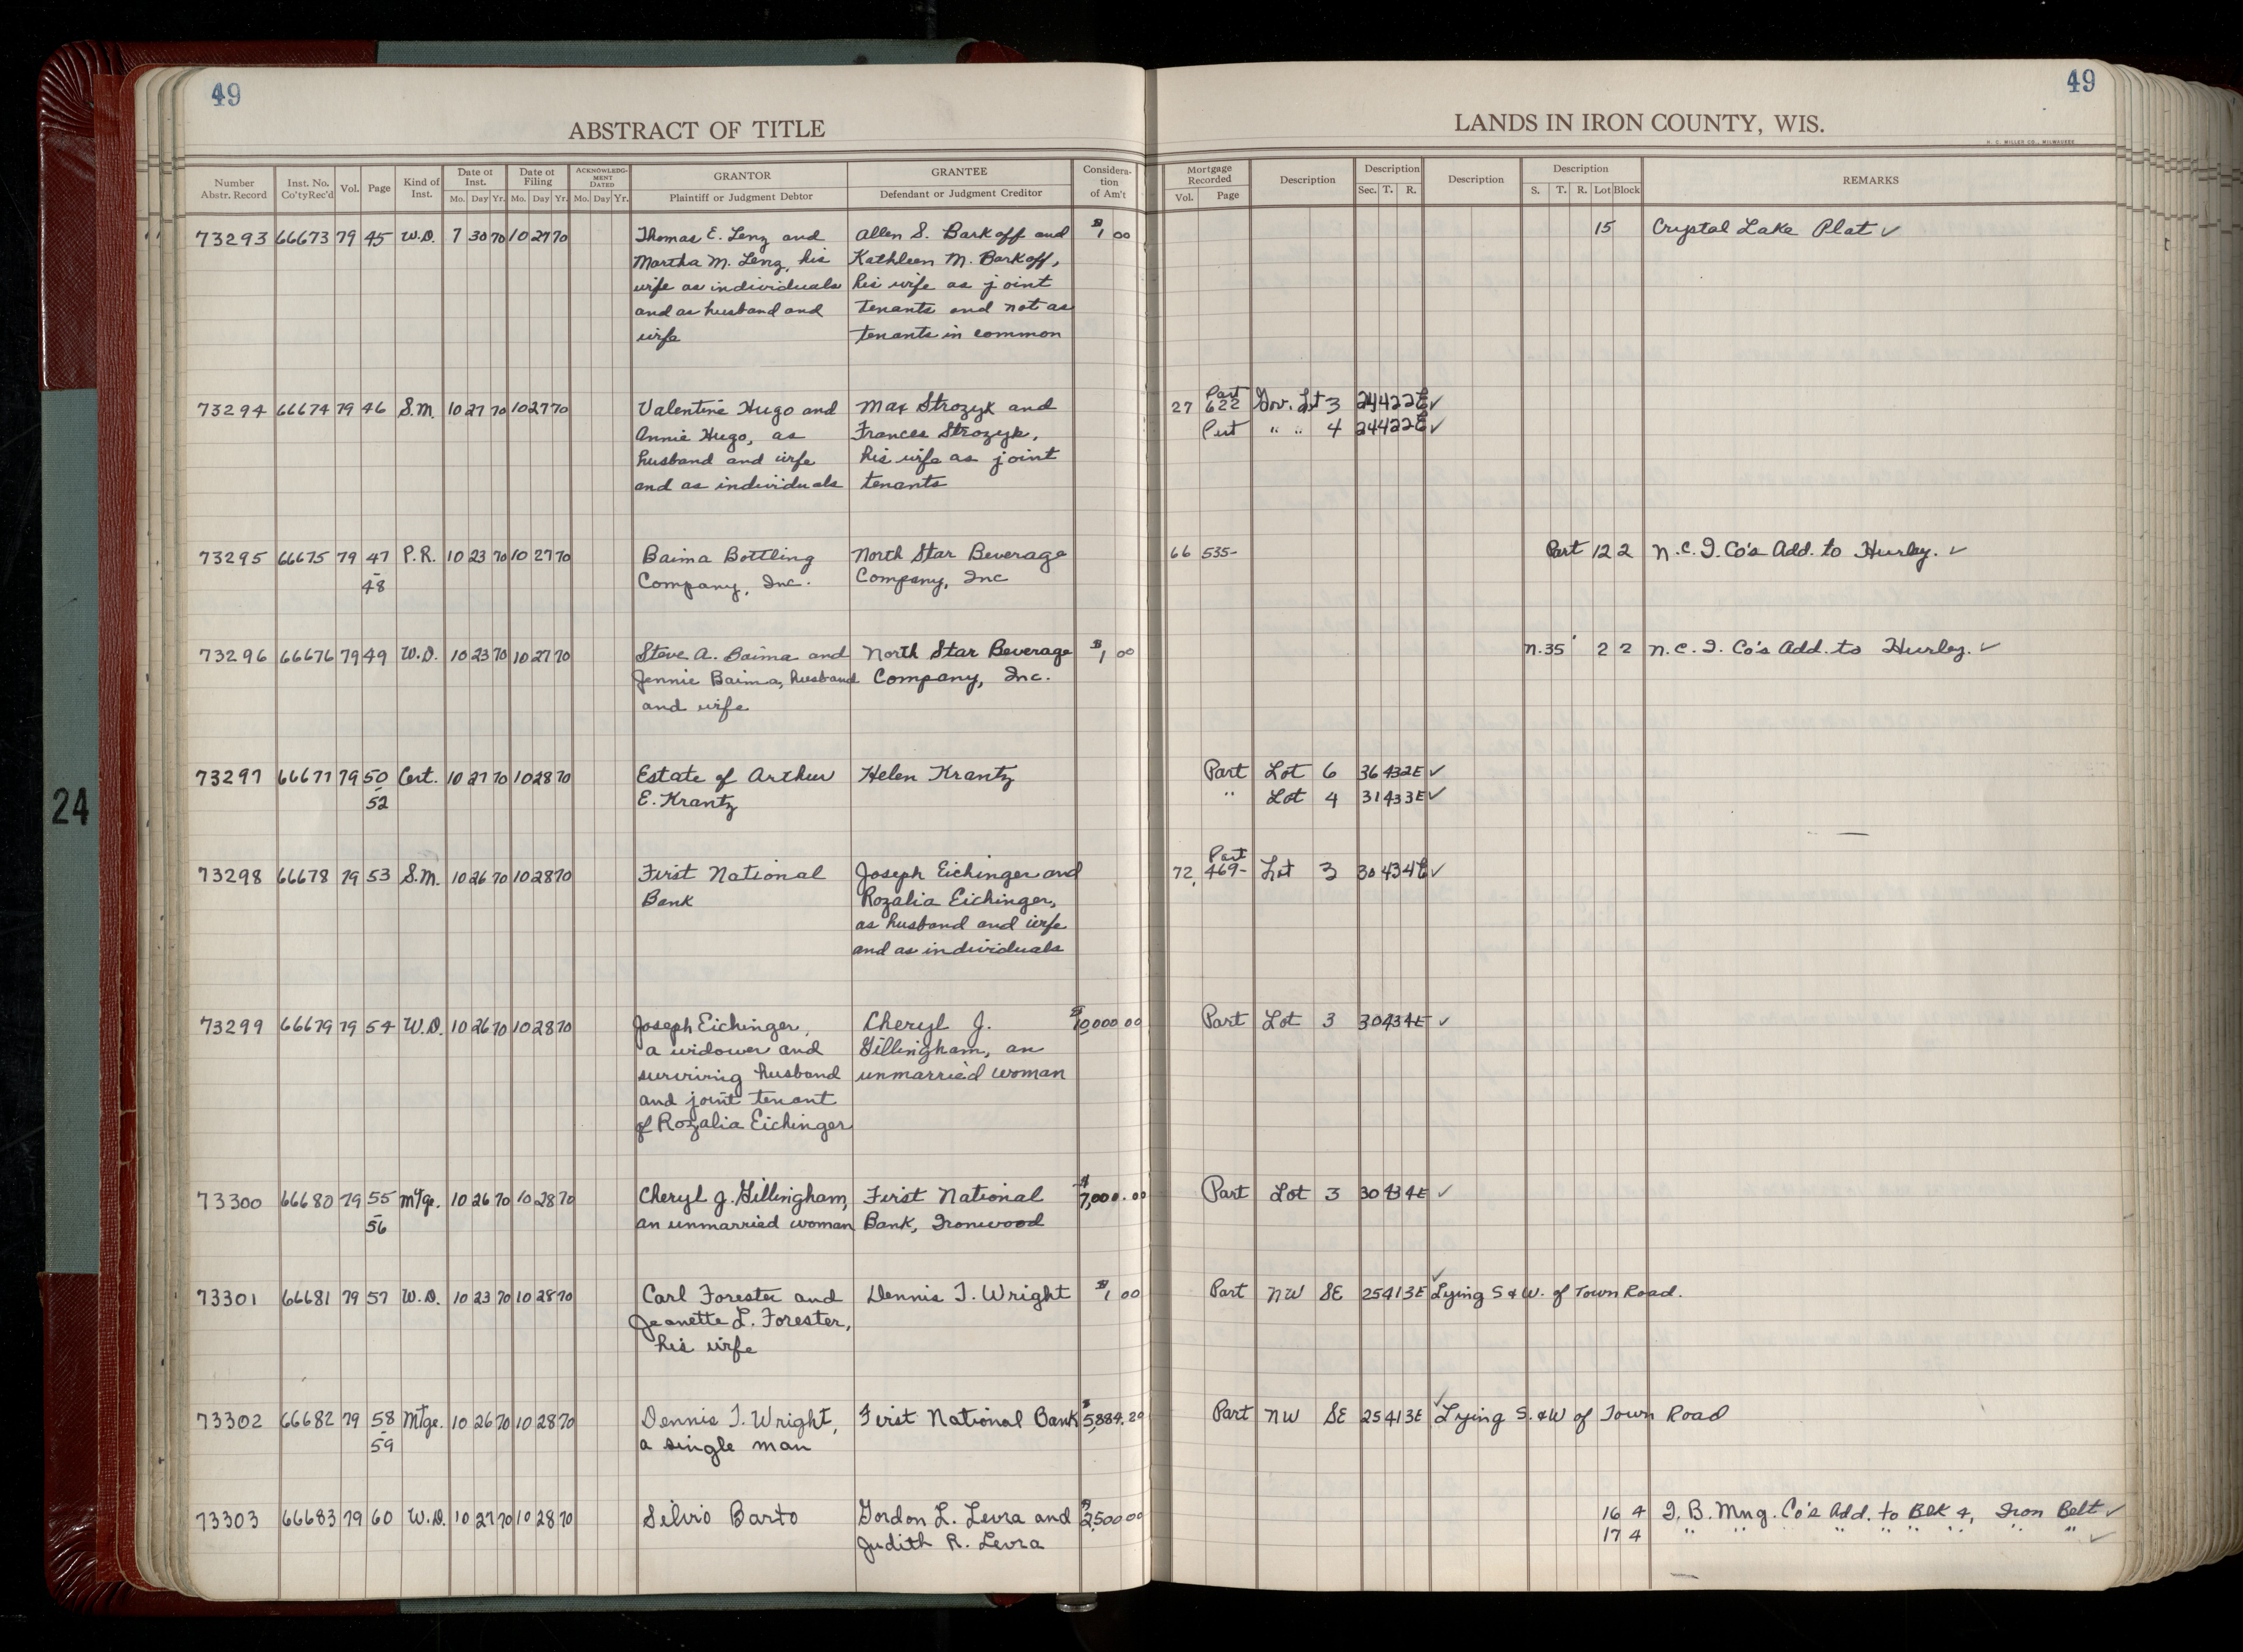 49
49
ABSTRACT OF TITLE
LANDS IN IRON COUNTY, WIS.
H. C. MILLER CO., MILWAUKEE
Number Abstr. Record
Inst. No. Co'ty Rec'd
Vol.
Page
Kind of Inst.
Date of Inst.
Mo. Day Yr.
Date of Filing
Mo. Day Yr.
ACKNOWLEDG-MENT DATED
Mo. Day Yr.
GRANTOR
Plaintiff or Judgment Debtor
GRANTEE
Defendant or Judgment Creditor
Considera-tion of Am't
Mortgage Recorded
Vol. Page
Description
Description
Sec. T. R.
Description
Description
S. T. R. Lot Block
REMARKS
73293 66673 79 45 W.D. 7 30 70 10 27 70 Thomas E. Lenz and Allen S. Barkoff and $1 00 15 Crystal Lake Plat ✓
Martha M. Lenz, his Kathleen M. Barkoff,
wife as individuals his wife as joint
and as husband and tenants and not as
wife tenants in common
73294 66674 79 46 S.M. 10 27 70 10 27 70 Valentine Hugo and Max Strozyk and 27 Part 622 Gov. Lot 3 24 42 2E ✓
Annie Hugo, as Frances Strozyk, Part " " 4 24 42 2E ✓
husband and wife his wife as joint
and as individuals tenants
73295 66675 79 47 P.R. 10 23 70 10 27 70 Baima Bottling North Star Beverage 66 535- Part 12 2 N.C.I. Co's Add. to Hurley. ✓
-48 Company, Inc. Company, Inc
73296 66676 79 49 W.D. 10 23 70 10 27 70 Steve A. Baima and North Star Beverage $1 00 N.35' 2 2 N.C.I. Co's Add. to Hurley. ✓
Jennie Baima, husband Company, Inc.
and wife
73297 66677 79 50 Cert. 10 27 70 10 28 70 Estate of Arthur Helen Krantz Part Lot 6 36 43 2E ✓
-52 E. Krantz " Lot 4 31 43 3E ✓
73298 66678 79 53 S.M. 10 26 70 10 28 70 First National Joseph Eichinger and 72 Part 469- Lot 3 30 43 4E ✓
Bank Rozalia Eichinger,
as husband and wife
and as individuals
73299 66679 79 54 W.D. 10 26 70 10 28 70 Joseph Eichinger, Cheryl J. $10,000.00 Part Lot 3 30 43 4E ✓
a widower and Gillingham, an
surviving husband unmarried woman
and joint tenant
of Rozalia Eichinger
73300 66680 79 55 Mtge. 10 26 70 10 28 70 Cheryl J. Gillingham, First National $7,000.00 Part Lot 3 30 43 4E ✓
-56 an unmarried woman Bank, Ironwood
73301 66681 79 57 W.D. 10 23 70 10 28 70 Carl Forester and Dennis T. Wright $1 00 Part NW SE 25 41 3E ✓ Lying S & W. of Town Road.
Jeanette L. Forester,
his wife
73302 66682 79 58 Mtge. 10 26 70 10 28 70 Dennis T. Wright, First National Bank $5,884.29 Part NW SE 25 41 3E ✓ Lying S. & W of Town Road
-59 a single man
73303 66683 79 60 W.D. 10 27 70 10 28 70 Silvio Barto Gordon L. Levra and $2,500 00 16 4 I.B. Mng. Co's Add. to Blk 4, Iron Belt ✓
Judith R. Levra 17 4 " " " " " " " " ✓
24